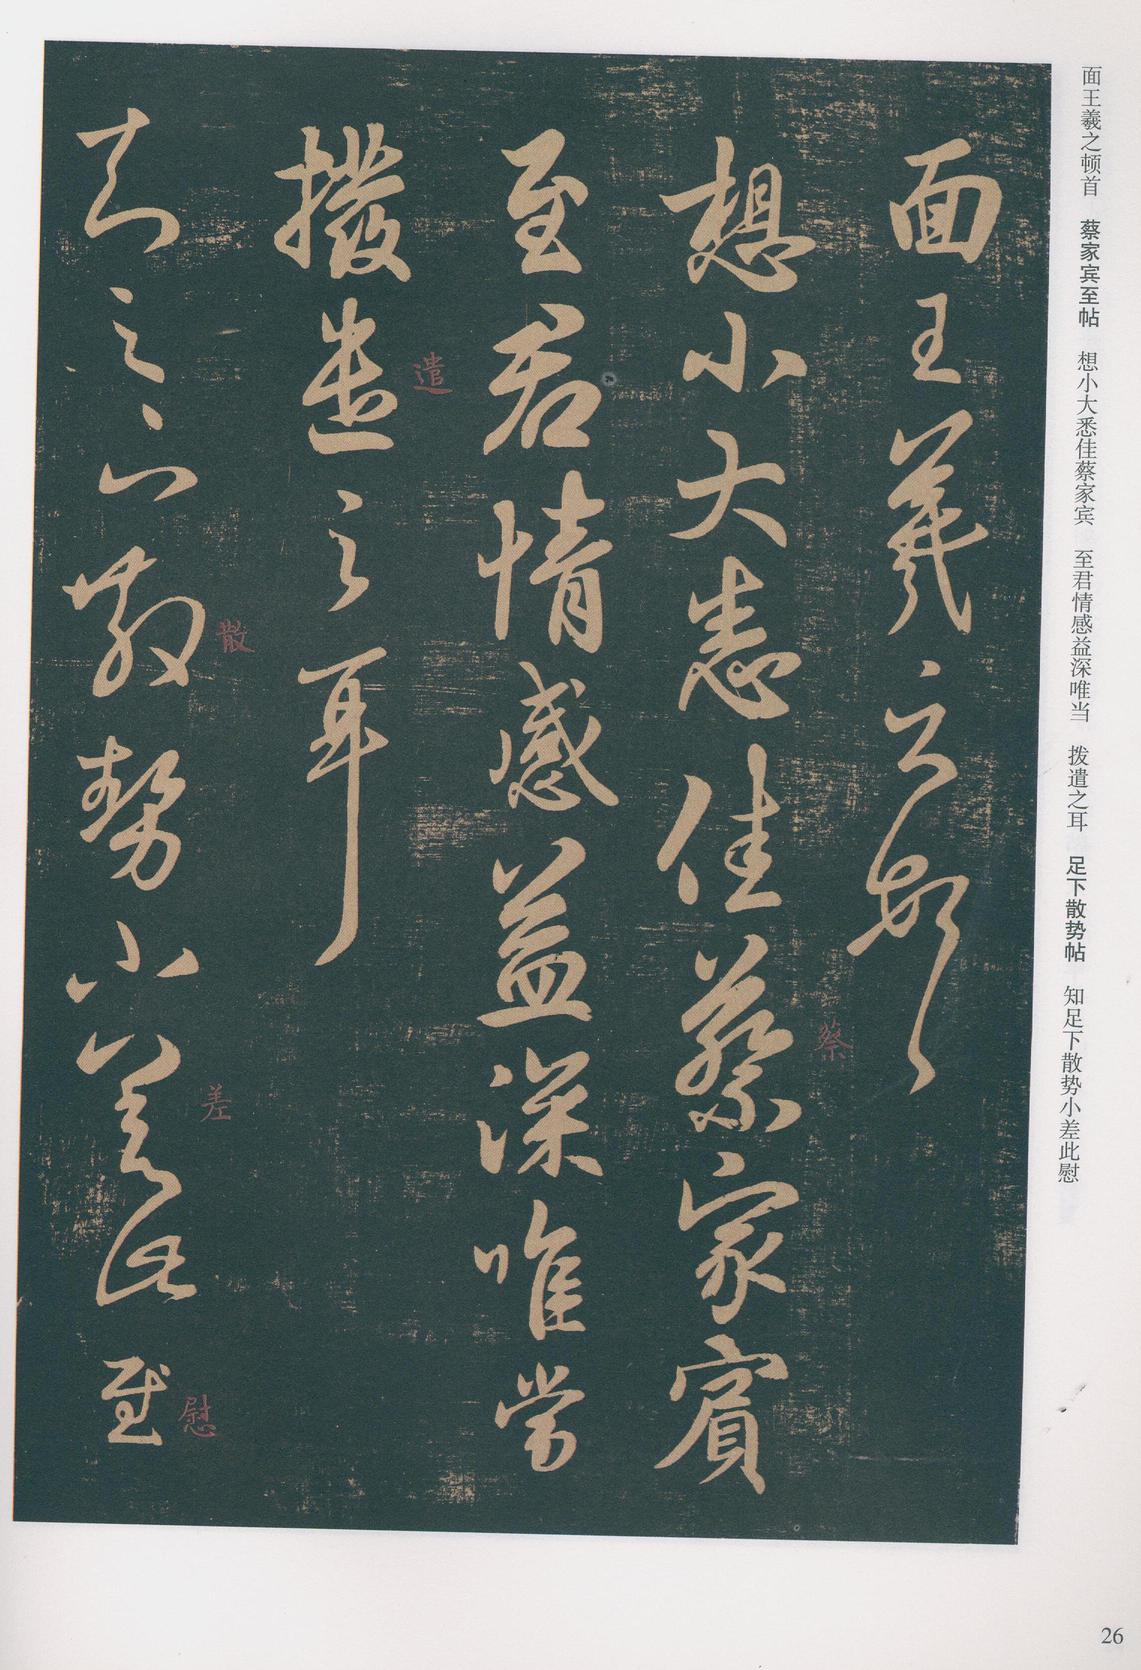 面王羲之顿首　蔡家宾至帖　想小大悉佳蔡家宾　至君情感益深唯当　拨遣之耳　足下散势帖　知足下散势小差此慰
面王羲之頓首
想小大悉佳蔡家賓
蔡
至君情感益深唯當
遣
撥遣之耳
散
差
慰
知足下散勢小差此慰
26